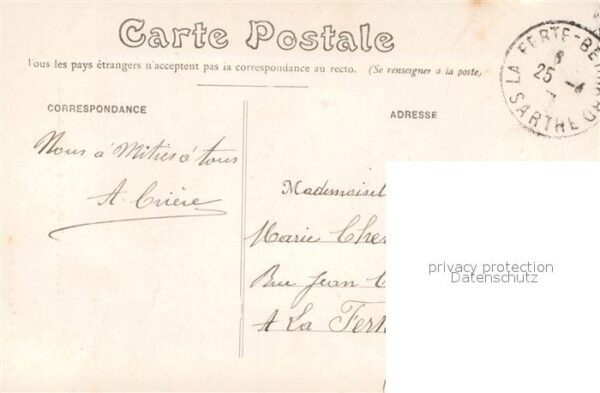 Carte Postale
Tous les pays étrangers n'acceptent pas la correspondance au recto. (Se renseigner à la poste)
LA FERTE-BE
8
25 -4
SARTHE
CORRESPONDANCE
ADRESSE
Nous à tous
A.
Mademoisel
Marie Che
Rue Jean
A La Fert
privacy protection
Datenschutz